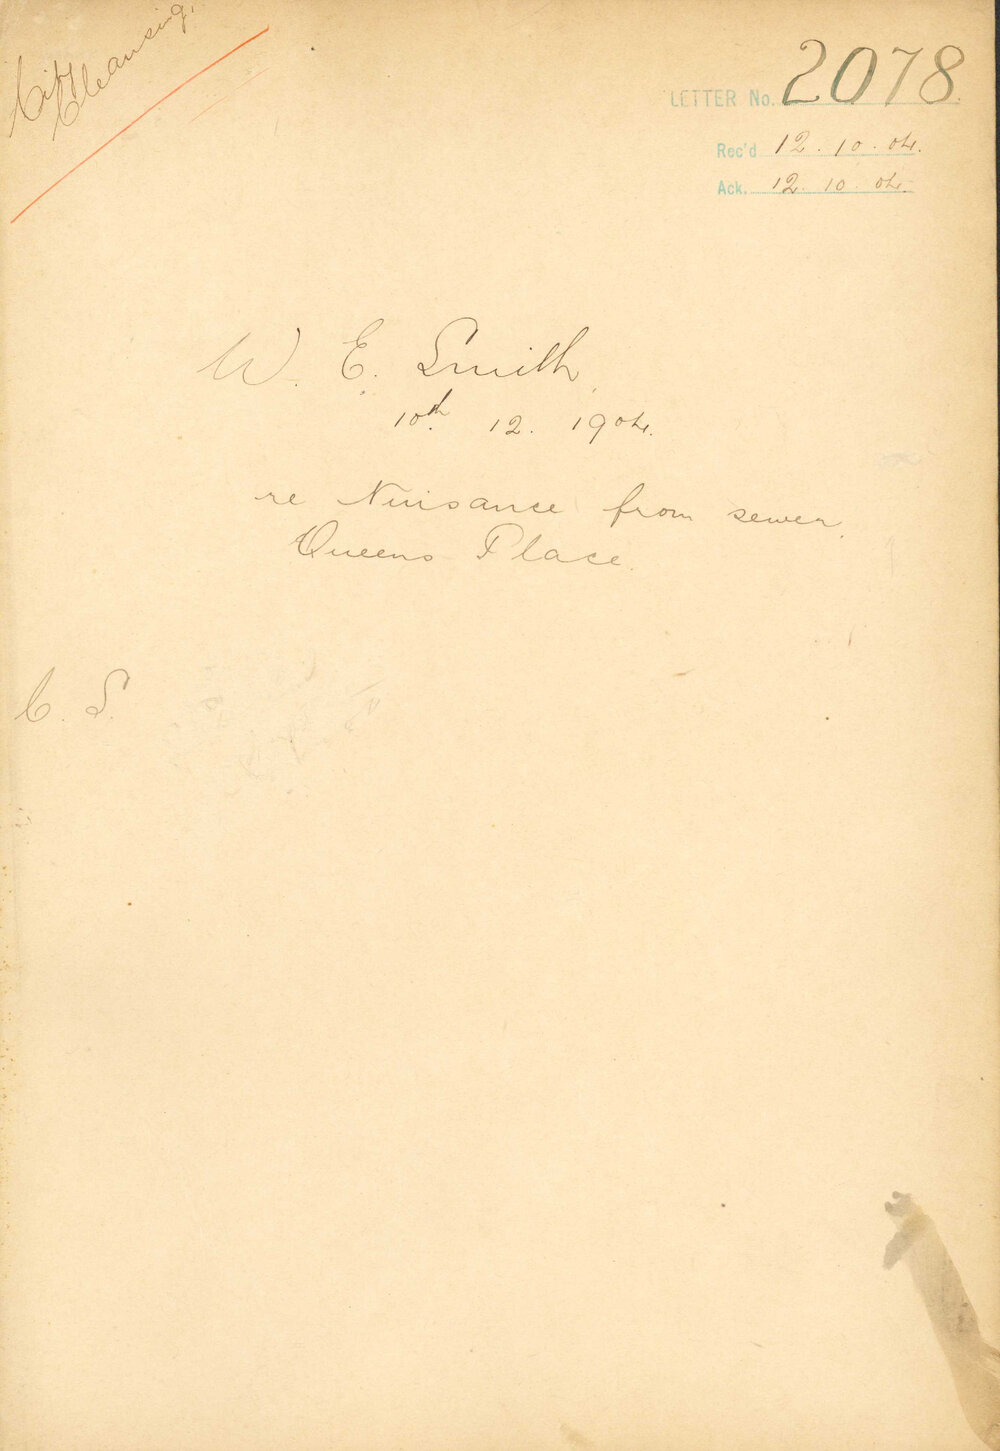 City
Cleansing.
LETTER No. 2078
Rec'd 12. 10. 04.
Ack. 12. 10. 04.
W. E. Smith
10th 12. 1904.
re Nuisance from sewer,
Queens Place.
C. S.